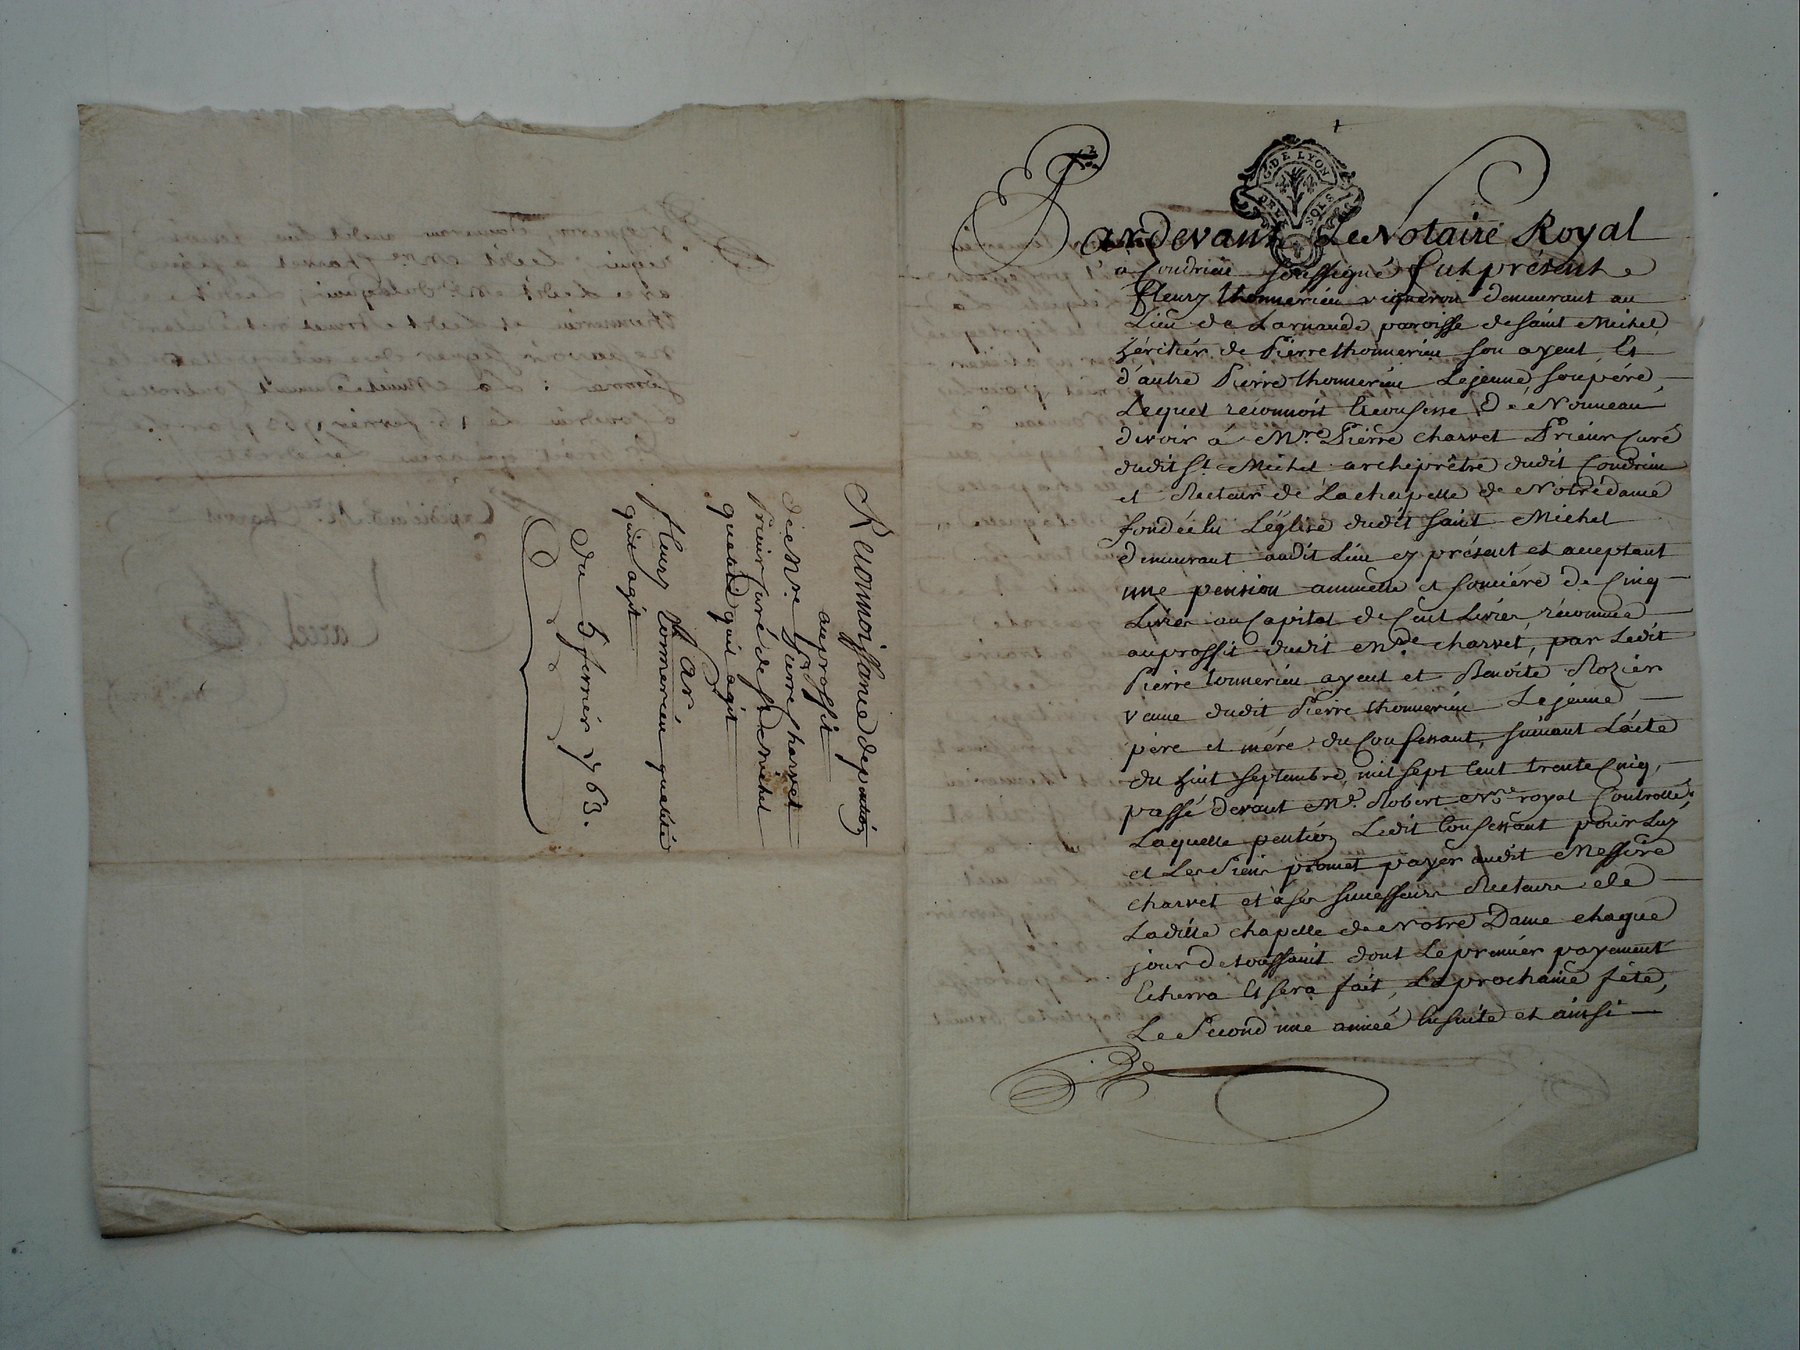 Reconnoissance de pantion
au proffit
de Mre Pierre Charvet
Prieur Curé de St Michel
qualité quil agit
Par
fleury tonnerieu qualité
quil agit
du 5 fevrier 1763.
G. DE LYON
DEUX SOLS
Pardevant Le Notaire Royal
à Condrieu soussigné fut présent
fleury thonnerieu vigneron demeurant au
Lieu de Larnaude paroisse de saint Michel
héritier de Pierre thonnerieu son ayeul, Et
d'autre Pierre thonnerieu Le jeune, son père,
Lequel réconnoit Et confesse dé Nouveau
devoir à Mre Pierre charvet Prieur Curé
dudit St Michel archiprêtre dudit Condrieu
et Recteur de La chapelle de Notre dame
fondée En L'église dudit saint Michel
demeurant audit Lieu cy présent et acceptant
une pension annuelle et foncière de Cinq
Livres au Capital de Cent Livres, réconnue
au proffit dudit Mre charvet, par Ledit
Pierre tonnerieu ayeul et Benoite Rozier
veuve dudit Pierre thonnerieu Le jeune
père et mére du Confessant, suivant L'acte
du huit septembre, mil sept Cent trente Cinq,
passé devant Me Robert Nre royal Controllé,
Laquelle pention Ledit Confessant pour Luy
et Les Siens promet payer audit Messire
charvet et à ses successeurs Recteurs de
Ladite chapelle de Notre Dame chaque
jour de toussaint dont Le premier payement
Echerra Et sera fait, La prochaine fête,
Le Second une année Ensuite et ainsi